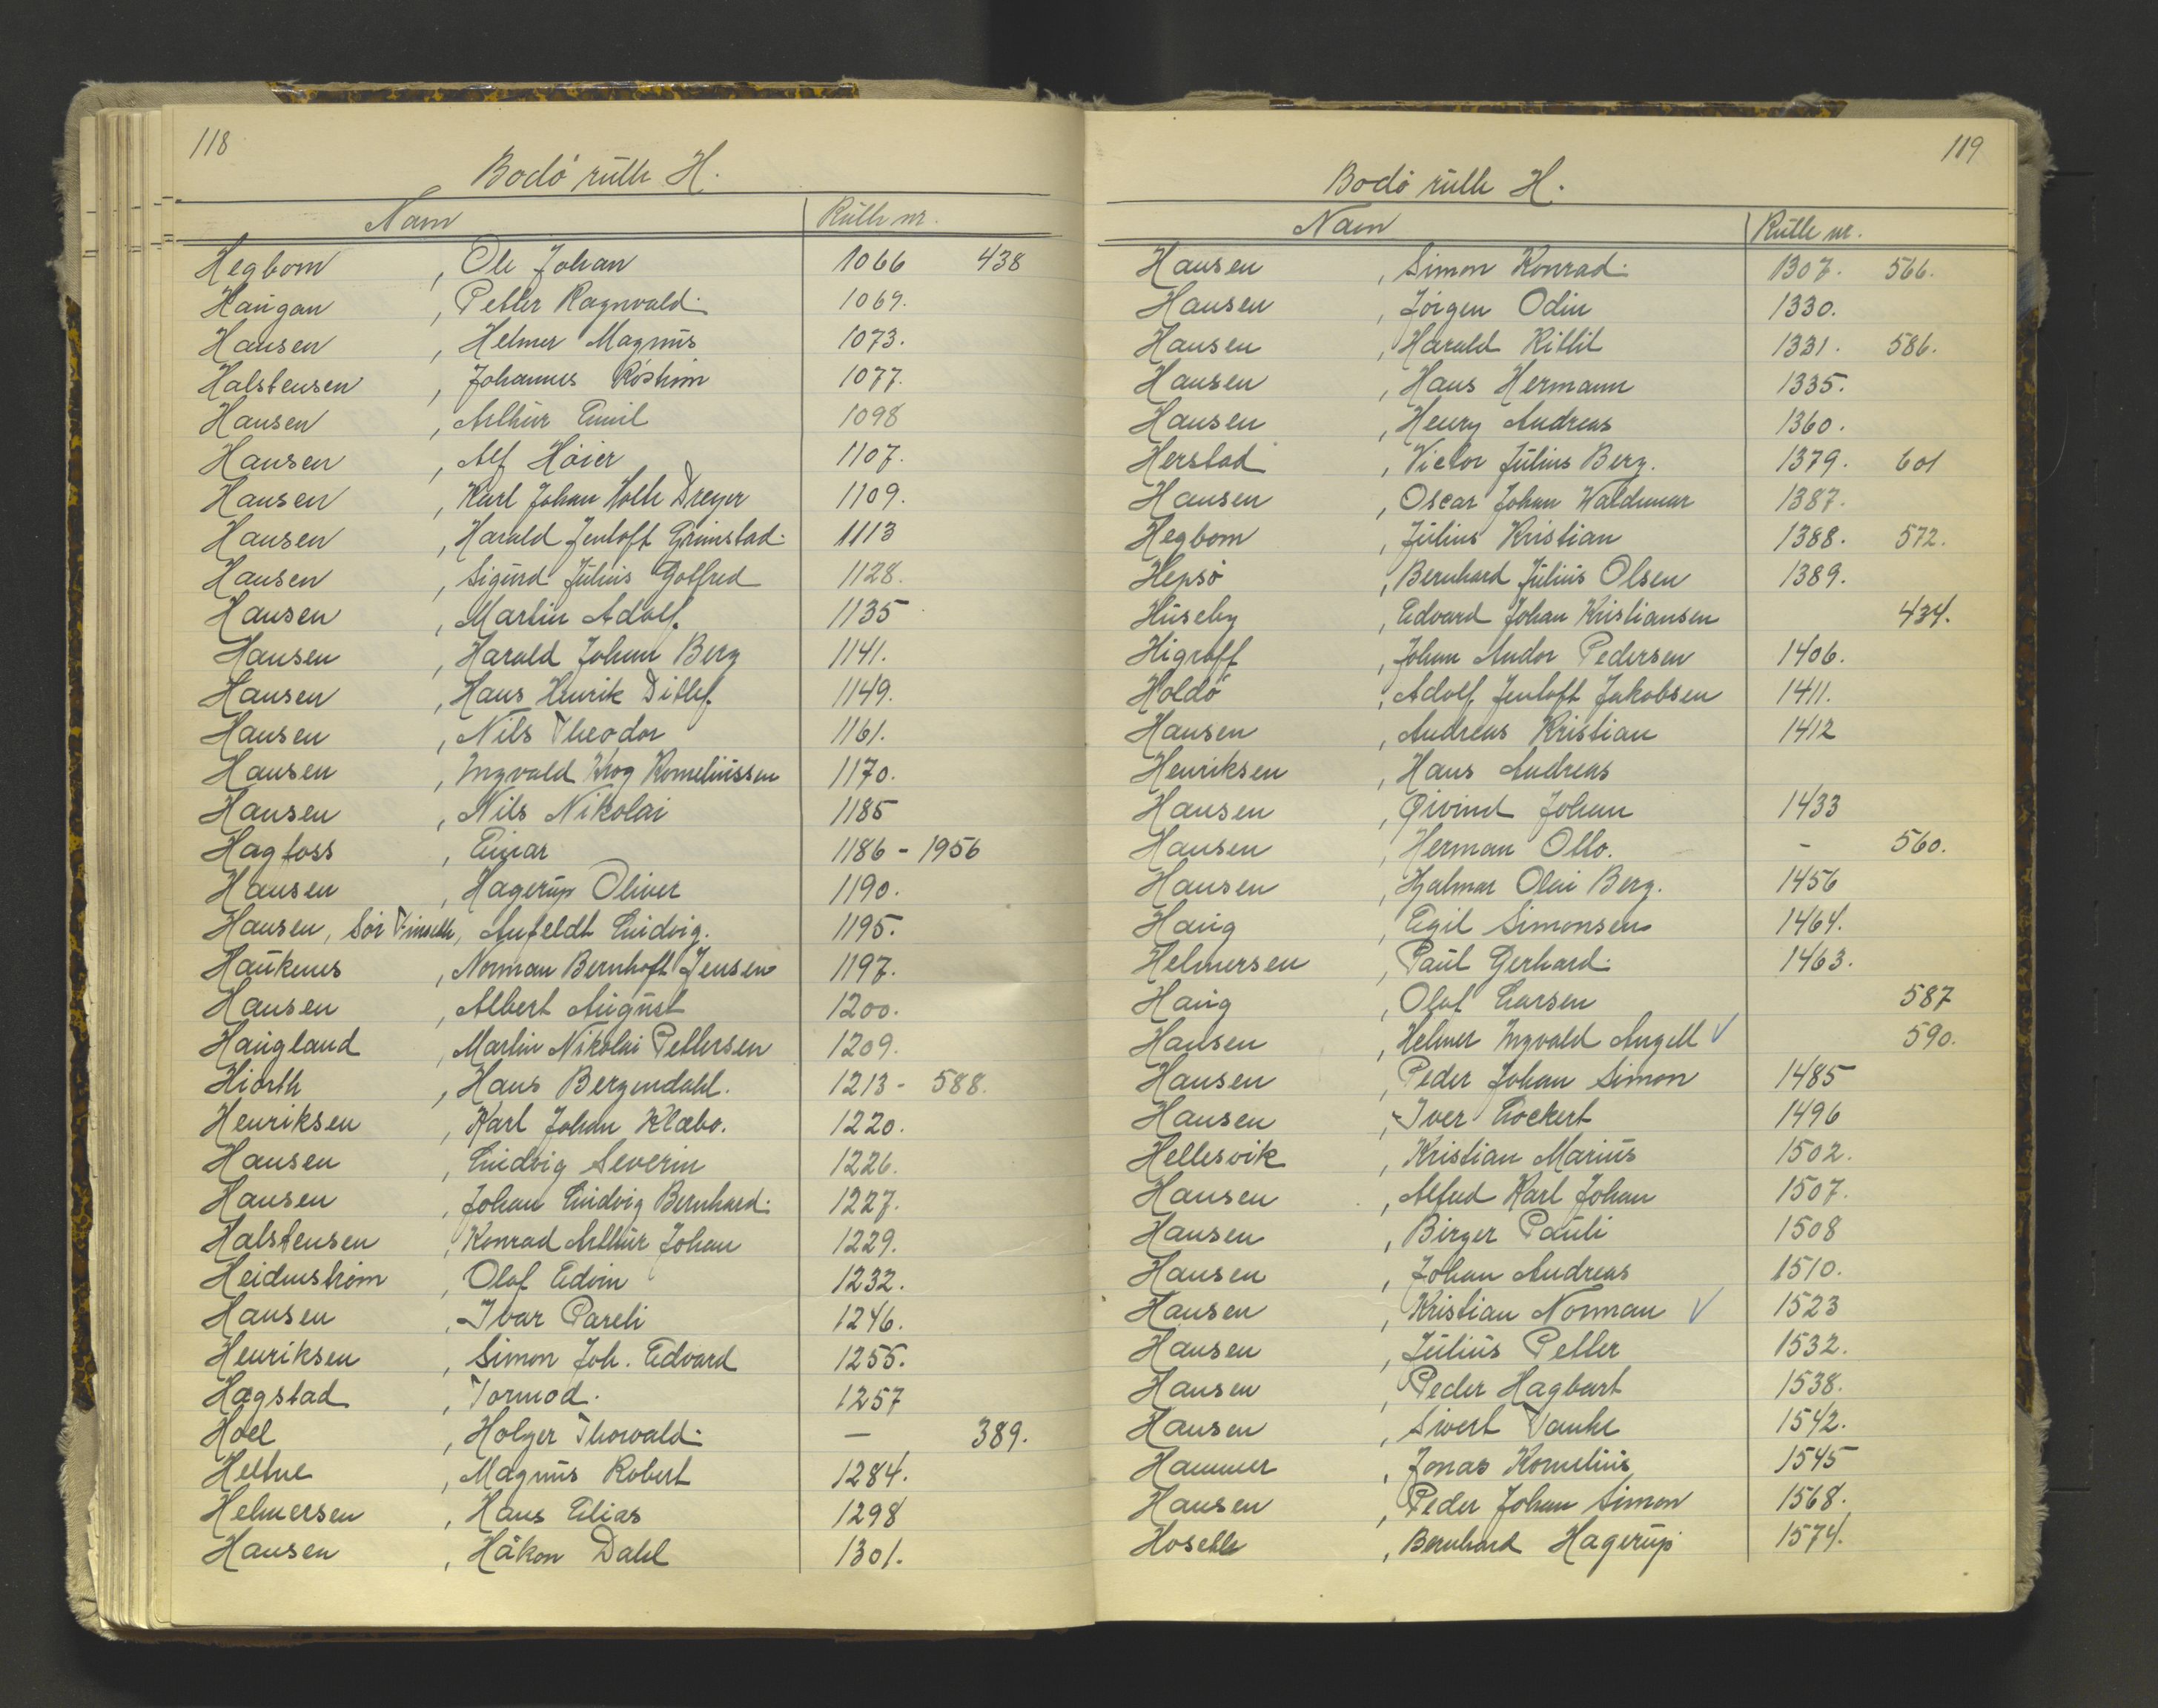 118
Bodö rulle H.
Navn Rulle nr.
Hegbom , Ole Johan 1066 438
Haugan , Petter Ragnvald. 1069.
Hansen , Helmer Magnus 1073.
Halstensen , Johannes 1077.
Hansen , Arthur Emil 1098
Hansen , Alf Höier 1107.
Hansen , Karl Johan Holte Dreyer 1109.
Hansen , Harald Jentoft Grimstad. 1113
Hansen , Sigurd Julius Gotfred 1128.
Hansen , Martin Adolf. 1135
Hansen , Harald Johan Berg 1141.
Hansen , Hans Henrik Ditlef. 1149.
Hansen , Nils Theodor 1161.
Hansen , Ingvald Krog Korneliussen 1170.
Hansen , Nils Nikolai 1185
Hagfoss , Einar 1186 - 1956
Hansen , Hagerup Oliver 1190.
Hansen, Sör , Anfeldt Ludvig. 1195.
Haukenes , Norman Bernhoft Jensen 1197.
Hansen , Albert August 1200.
Haugland , Martin Nikolai Pettersen 1209.
Hiorth , Hans Bergendahl. 1213 - 588.
Henriksen , Karl Johan Klæbo. 1220.
Hansen , Ludvig Severin 1226.
Hansen , Johan Ludvig Bernhard. 1227.
Halstensen , Konrad Arthur Johan 1229.
Heidenström , Olaf Edvin 1232.
Hansen , Ivar Pareli 1246.
Henriksen , Simon Joh. Edvard 1255.
Hagstad , Tormod. 1257
Hoel , Holger Thorvald. — 389.
Heltne , Magnus Robert 1284.
Helmersen , Hans Elias 1298
Hansen , Håkon Dahl 1301.
119
Bodö rulle H.
Navn Rulle nr.
Hansen , Simon Konrad. 1307. 566.
Hansen , Jörgen Odin 1330.
Hansen , Harald Kittil 1331. 586.
Hansen , Hans Hermann 1335.
Hansen , Henry Andreas 1360.
Herstad , Victor Julius Berg. 1379. 601
Hansen , Oscar Johan Waldemar 1387.
Hegbom , Julius Kristian 1388. 572.
Hepsö , Bernhard Julius Olsen 1389.
Huseby , Edvard Johan Kristiansen 434.
Higraff , Johan Andor Pedersen 1406.
Holdö , Adolf Jentoft Jakobsen 1411.
Hansen , Andreas Kristian 1412
Henriksen , Hans Andreas
Hansen , Öivind Johan 1433
Hansen , Herman Otto. - 560.
Hansen , Hjalmar Olai Berg. 1456
Haug , Egil Simonsen 1464.
Helmersen , Paul Gerhard. 1463.
Haug , Olaf Larsen 587
Hansen , Helmer Ingvald Angell ✓ 590.
Hansen , Peder Johan Simon 1485
Hansen , Iver Lockert 1496
Hellesvik , Kristian Marius 1502.
Hansen , Alfred Karl Johan 1507.
Hansen , Birger Pauli 1508
Hansen , Johan Andreas 1510.
Hansen , Kristian Norman ✓ 1523
Hansen , Julius Petter 1532.
Hansen , Peder Hagbart 1538.
Hansen , Sivert Tanke 1542.
Hammer , Jonas Kornelius 1545
Hansen , Peder Johan Simon 1568.
Hoseth , Bernhard Hagerup 1574.